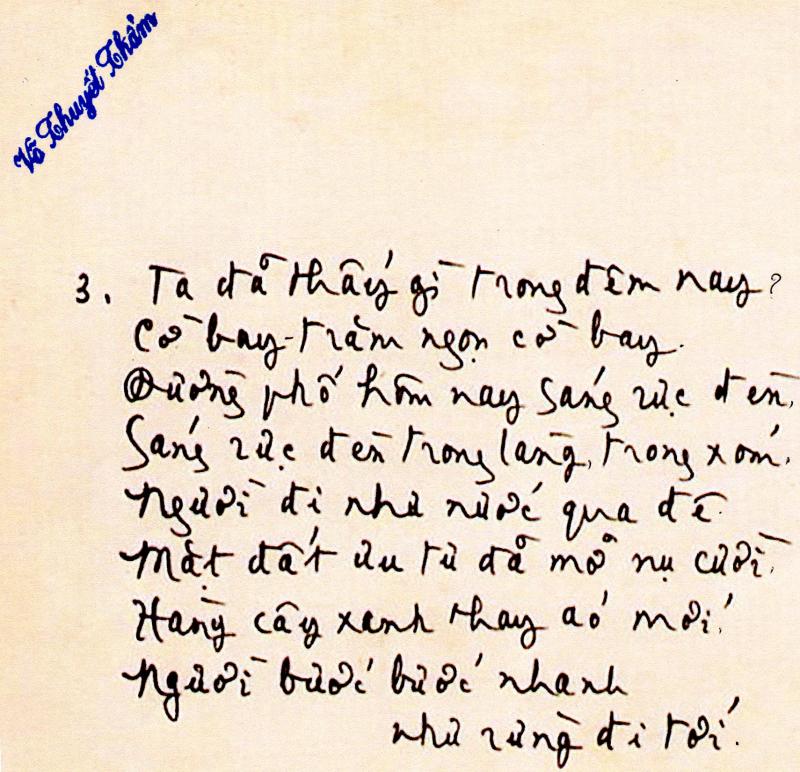 Võ Thuyết Thẩm
3. Ta đã thấy gì trong đêm nay?
Cờ bay trăm ngọn cờ bay.
Đường phố hôm nay sáng rực đèn,
Sáng rực đèn trong làng, trong xóm.
Người đi như nước qua đê
Mặt đất ưu tư đã mở nụ cười.
Hàng cây xanh thay áo mới.
Người bước bước nhanh
như rừng đi tới.